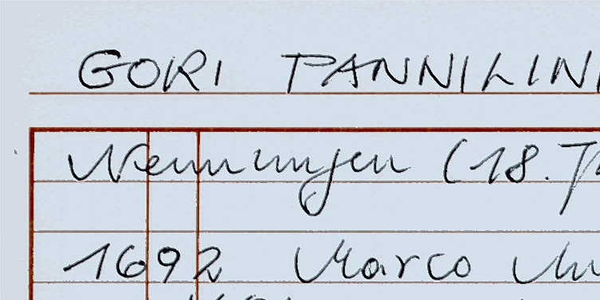 GORI PANNILINI
Nennungen (18.
1692 Marco